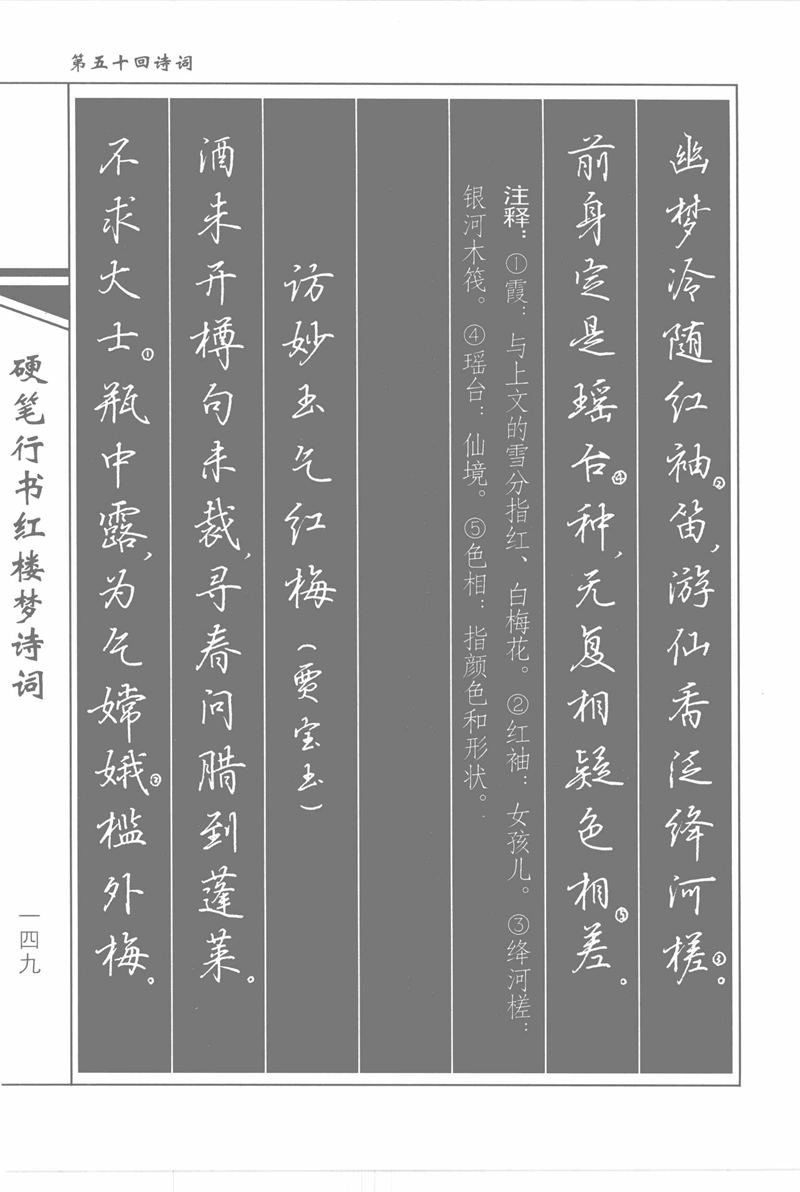 第五十回诗词
幽梦冷随红袖②笛，游仙香泛绛河槎③。
前身定是瑶台④种，无复相疑色相⑤差。
注释：①霞：与上文的雪分指红、白梅花。②红袖：女孩儿。③绛河槎：
银河木筏。④瑶台：仙境。⑤色相：指颜色和形状。
访妙玉乞红梅（贾宝玉）
酒未开樽句未裁，寻春问腊到蓬莱。
不求大士①瓶中露，为乞嫦娥②槛外梅。
硬笔行书红楼梦诗词
一四九